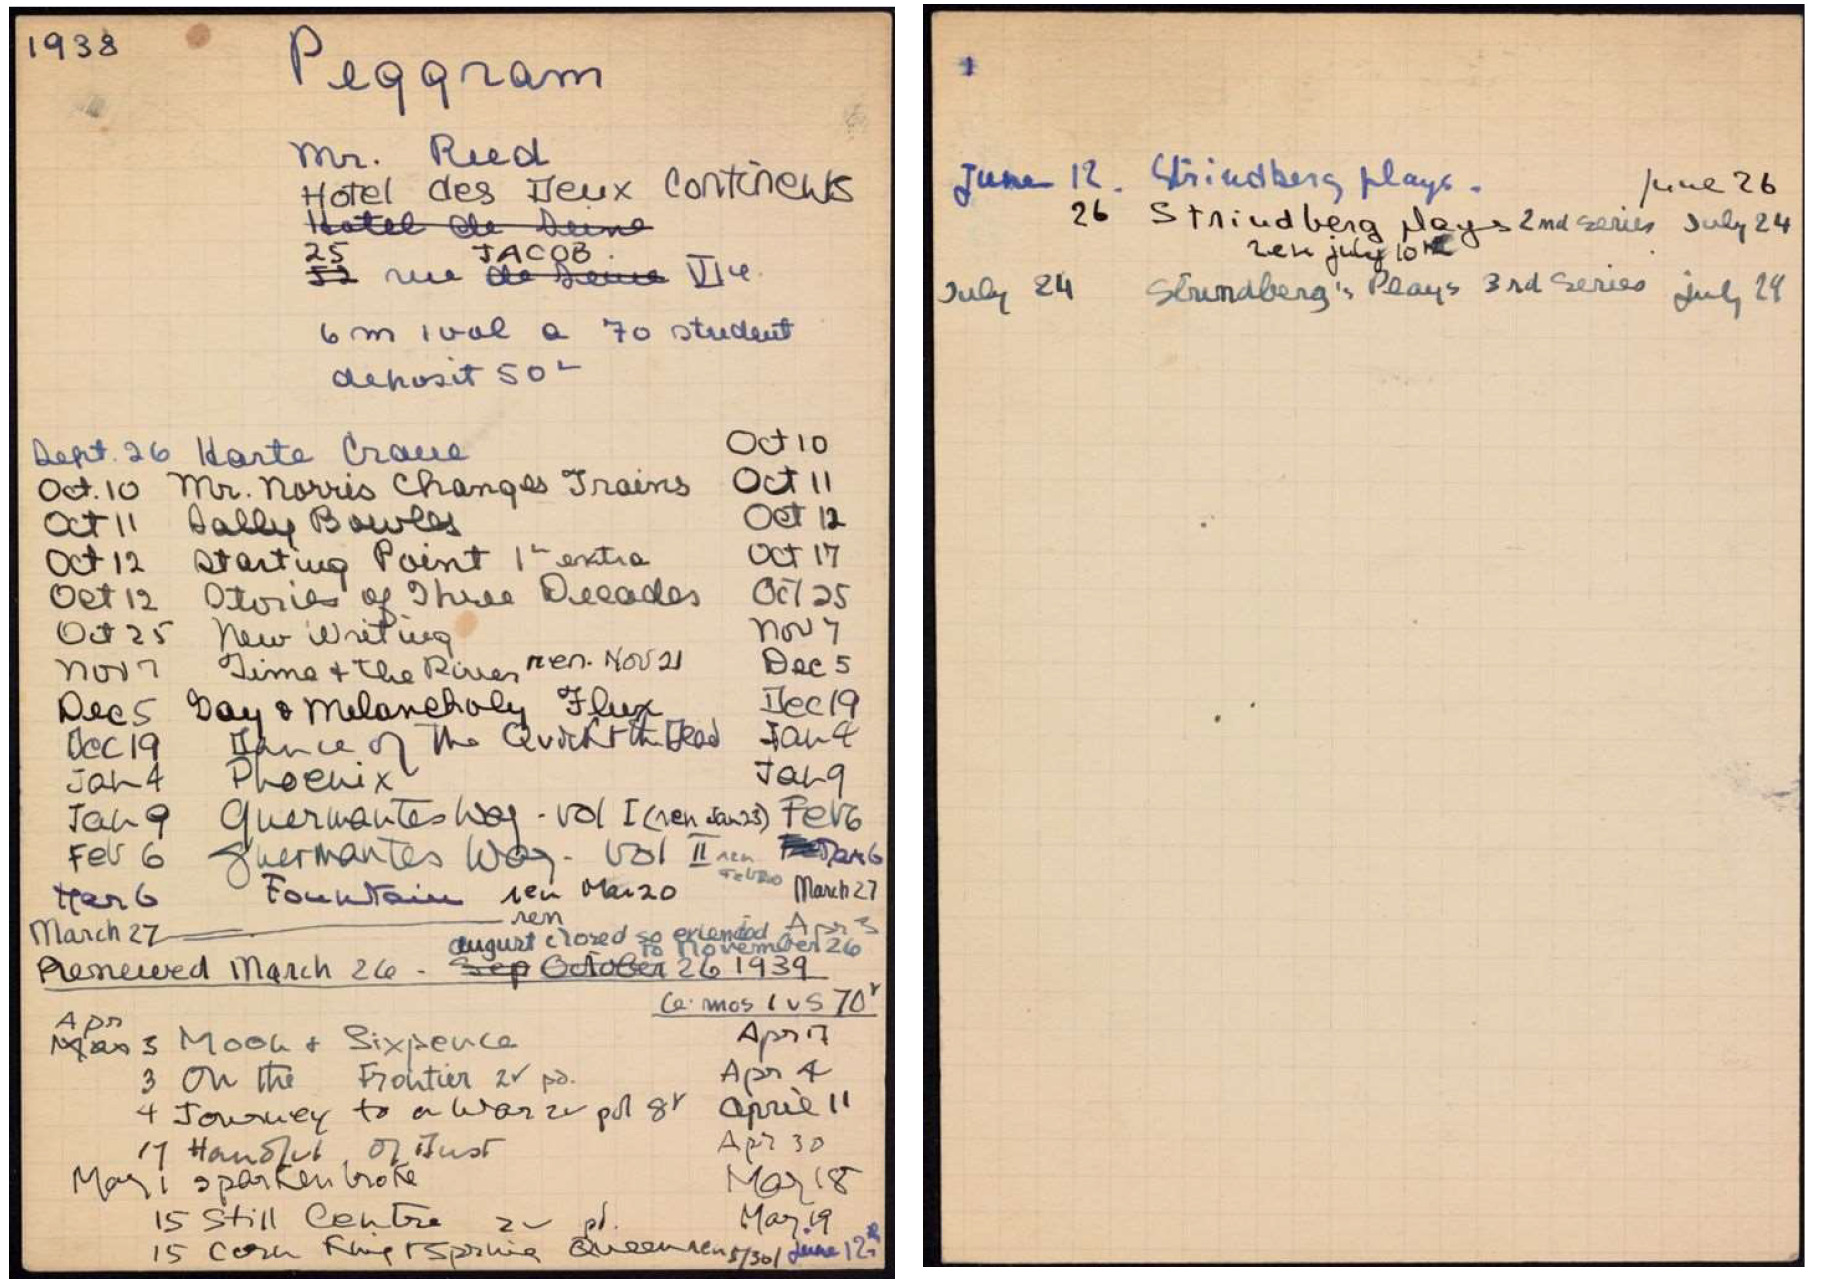 1938
Peggram
Mr. Reed
Hotel des Deux Continents
Hotel de Seine
25 JACOB.
52 rue de Seine VIe
6 m 1 vol a 70 student
deposit 50
Sept. 26 Harte Crane Oct 10
Oct. 10 Mr. Norris Changes Trains Oct 11
Oct 11 Sally Bowles Oct 12
Oct 12 Starting Point 1 extra Oct 17
Oct 12 Stories of Three Decades Oct 25
Oct 25 New Writing Nov 7
Nov 7 Time + the River ren. Nov 21 Dec 5
Dec 5 Gay & Melancholy Flux Dec 19
Dec 19 Dance of The Quick + the Dead Jan 4
Jan 4 Phoenix Jan 9
Jan 9 Guermantes Way - vol I (ren Jan 23) Feb 6
Feb 6 Guermantes Way - Vol II ren Feb 20 Mar 6
Mar 6 Fountain ren Mar 20 March 27
March 27 ren Apr 3
august closed so extended
to November 26
Renewed March 26 - Sep October 26 1939
6 mos 1 vs 70
Apr
Mar 3 Moon + Sixpence Apr 17
3 On the Frontier 2 pd. Apr 4
4 Journey to a War 2 pd 8 April 11
17 Handful of Dust Apr 30
May 1 Sparkenbroke May 18
15 Still Centre 2 pd. May 19
15 Corn King + Spring Queen ren 5/30/ June 12
June 12. Strindberg plays. June 26
26 Strindberg plays 2nd series July 24
ren july 10th
July 24 Strindberg's Plays 3rd Series July 29